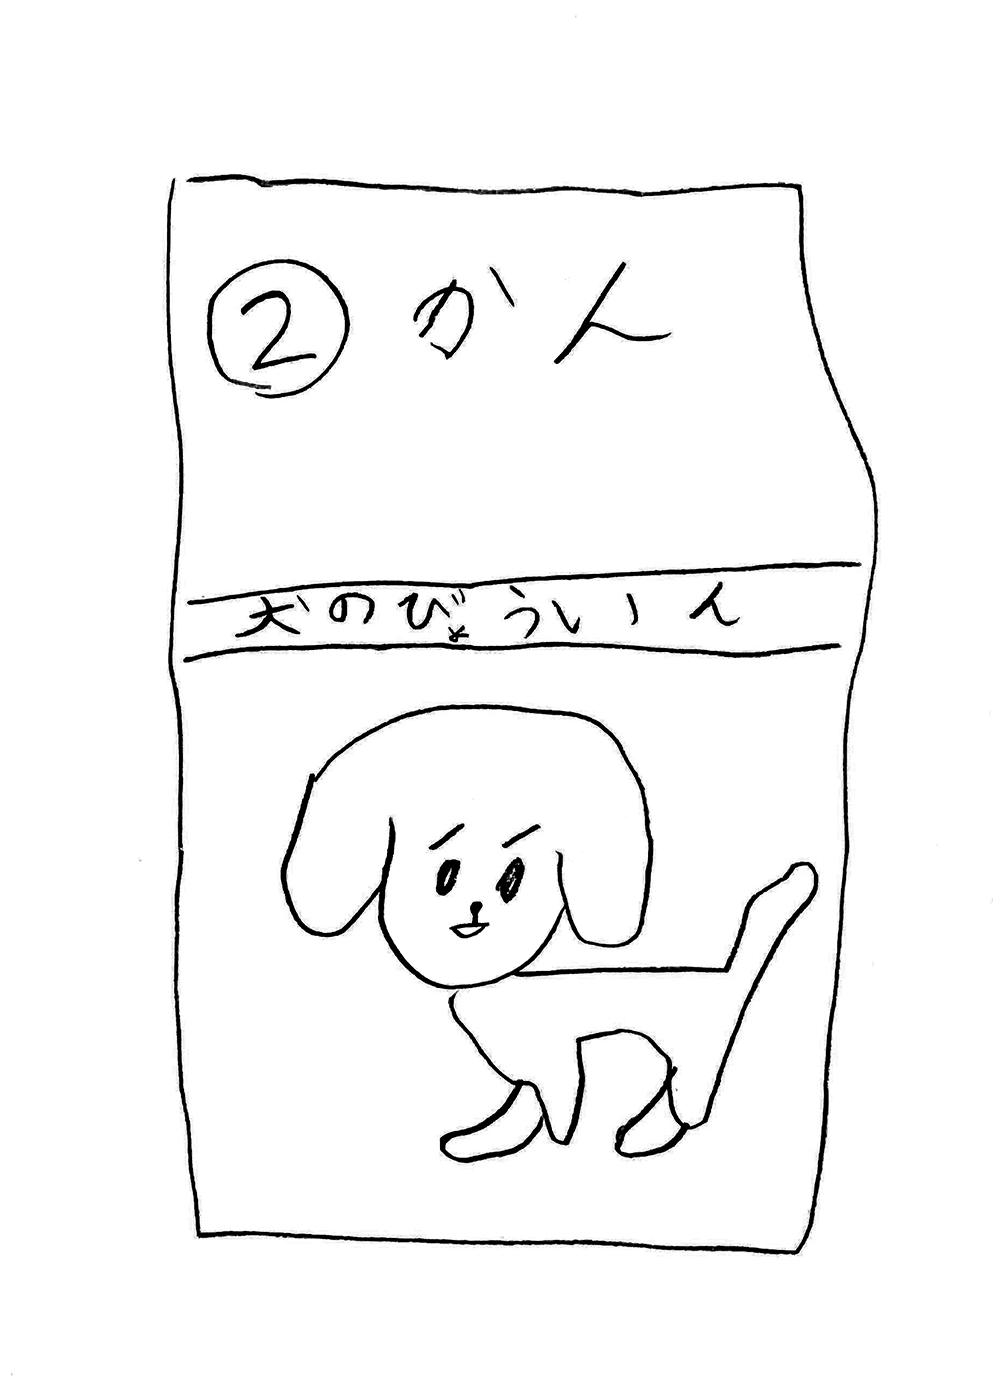 ② かん
犬のびょういん